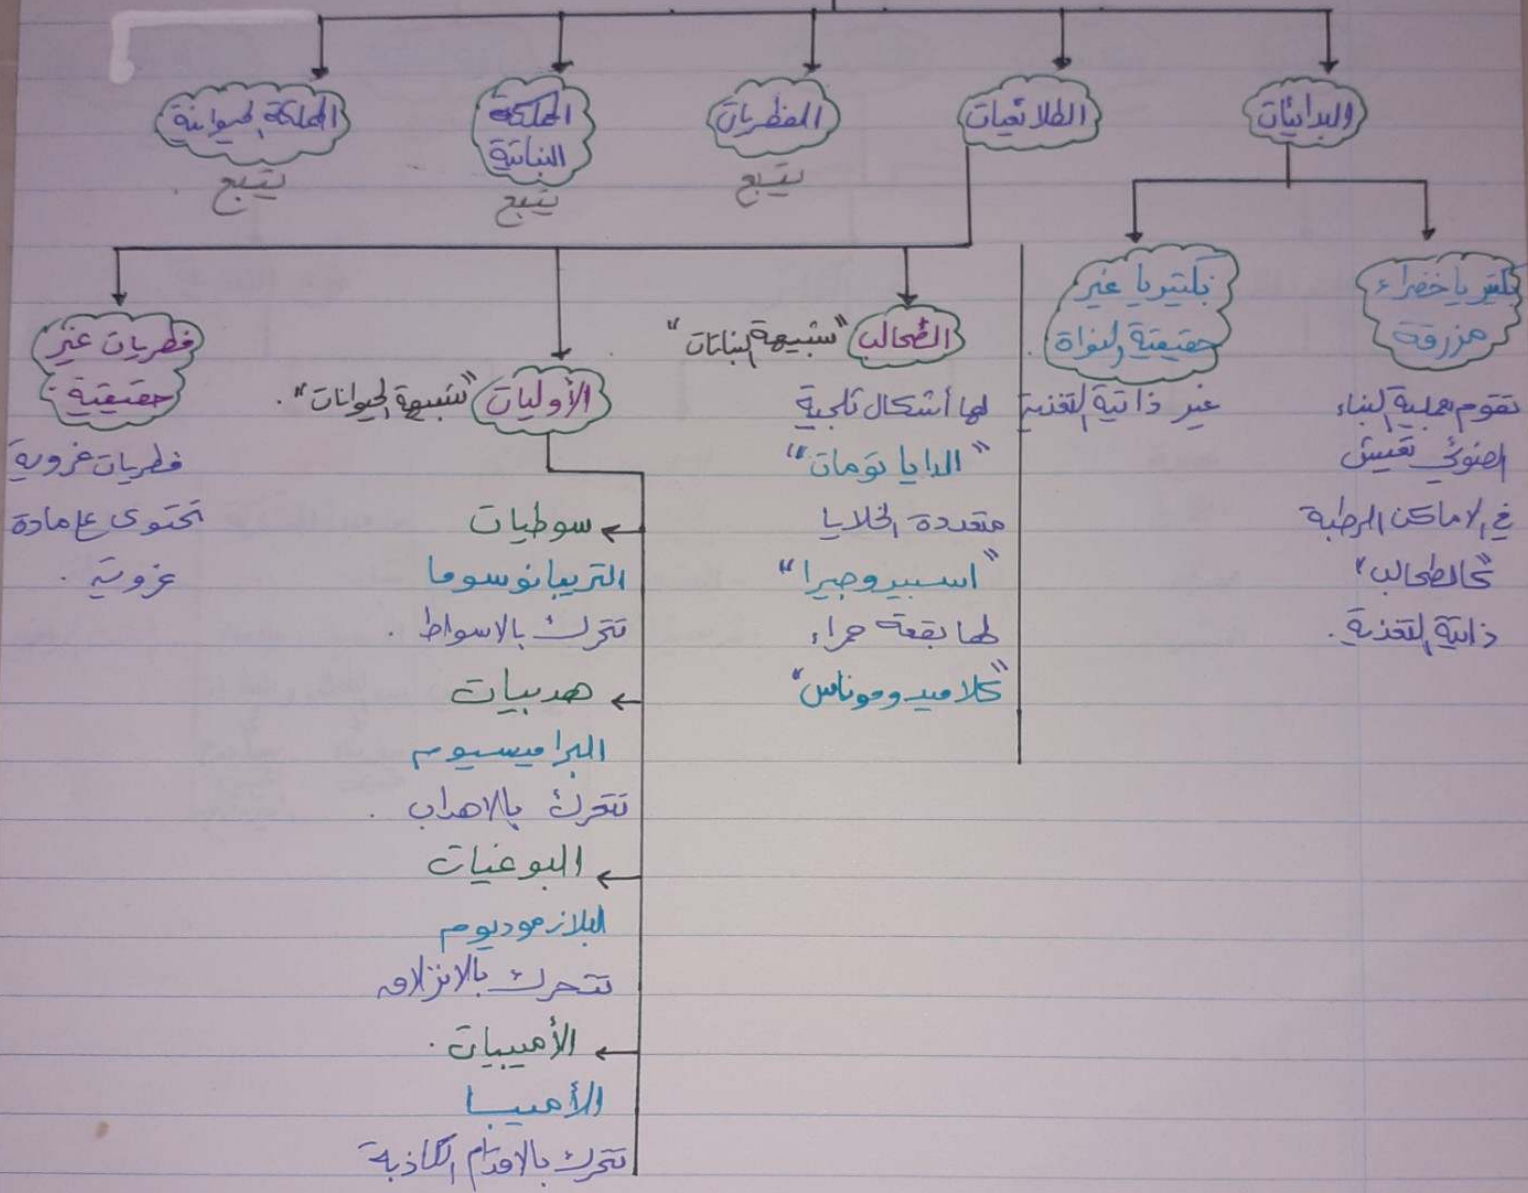 البدائيات
الطلائعيات
الفطريات
يتبع
المملكة
النباتية
يتبع
المملكة الحيوانية
يتبع
بكتيريا خضراء
مزرقة
تقوم بعملية البناء
الضوئي تعيش
في الاماكن الرطبة
"كالطحالب"
ذاتية التغذية.
بكتيريا غير
حقيقية النواة
غير ذاتية التغذية
الطحالب "شبيهة النباتات"
لها أشكال ثلجية
"الدايا تومات"
متعددة الخلايا
"اسبيروجيرا"
لها بقعة حمراء
"كلاميدوموناس"
الأوليات "شبيهة الحيوانات".
سوطيات
التريبانوسوما
تتحرك بالاسواط.
هدبيات
البراميسيوم
تتحرك بالاهداب.
البوغيات
البلازموديوم
تتحرك بالانزلاق
الأميبيات.
الأميبا
تتحرك بالاقدام الكاذبة
فطريات غير
حقيقية
فطريات غروية
تحتوى ع مادة
غروية.